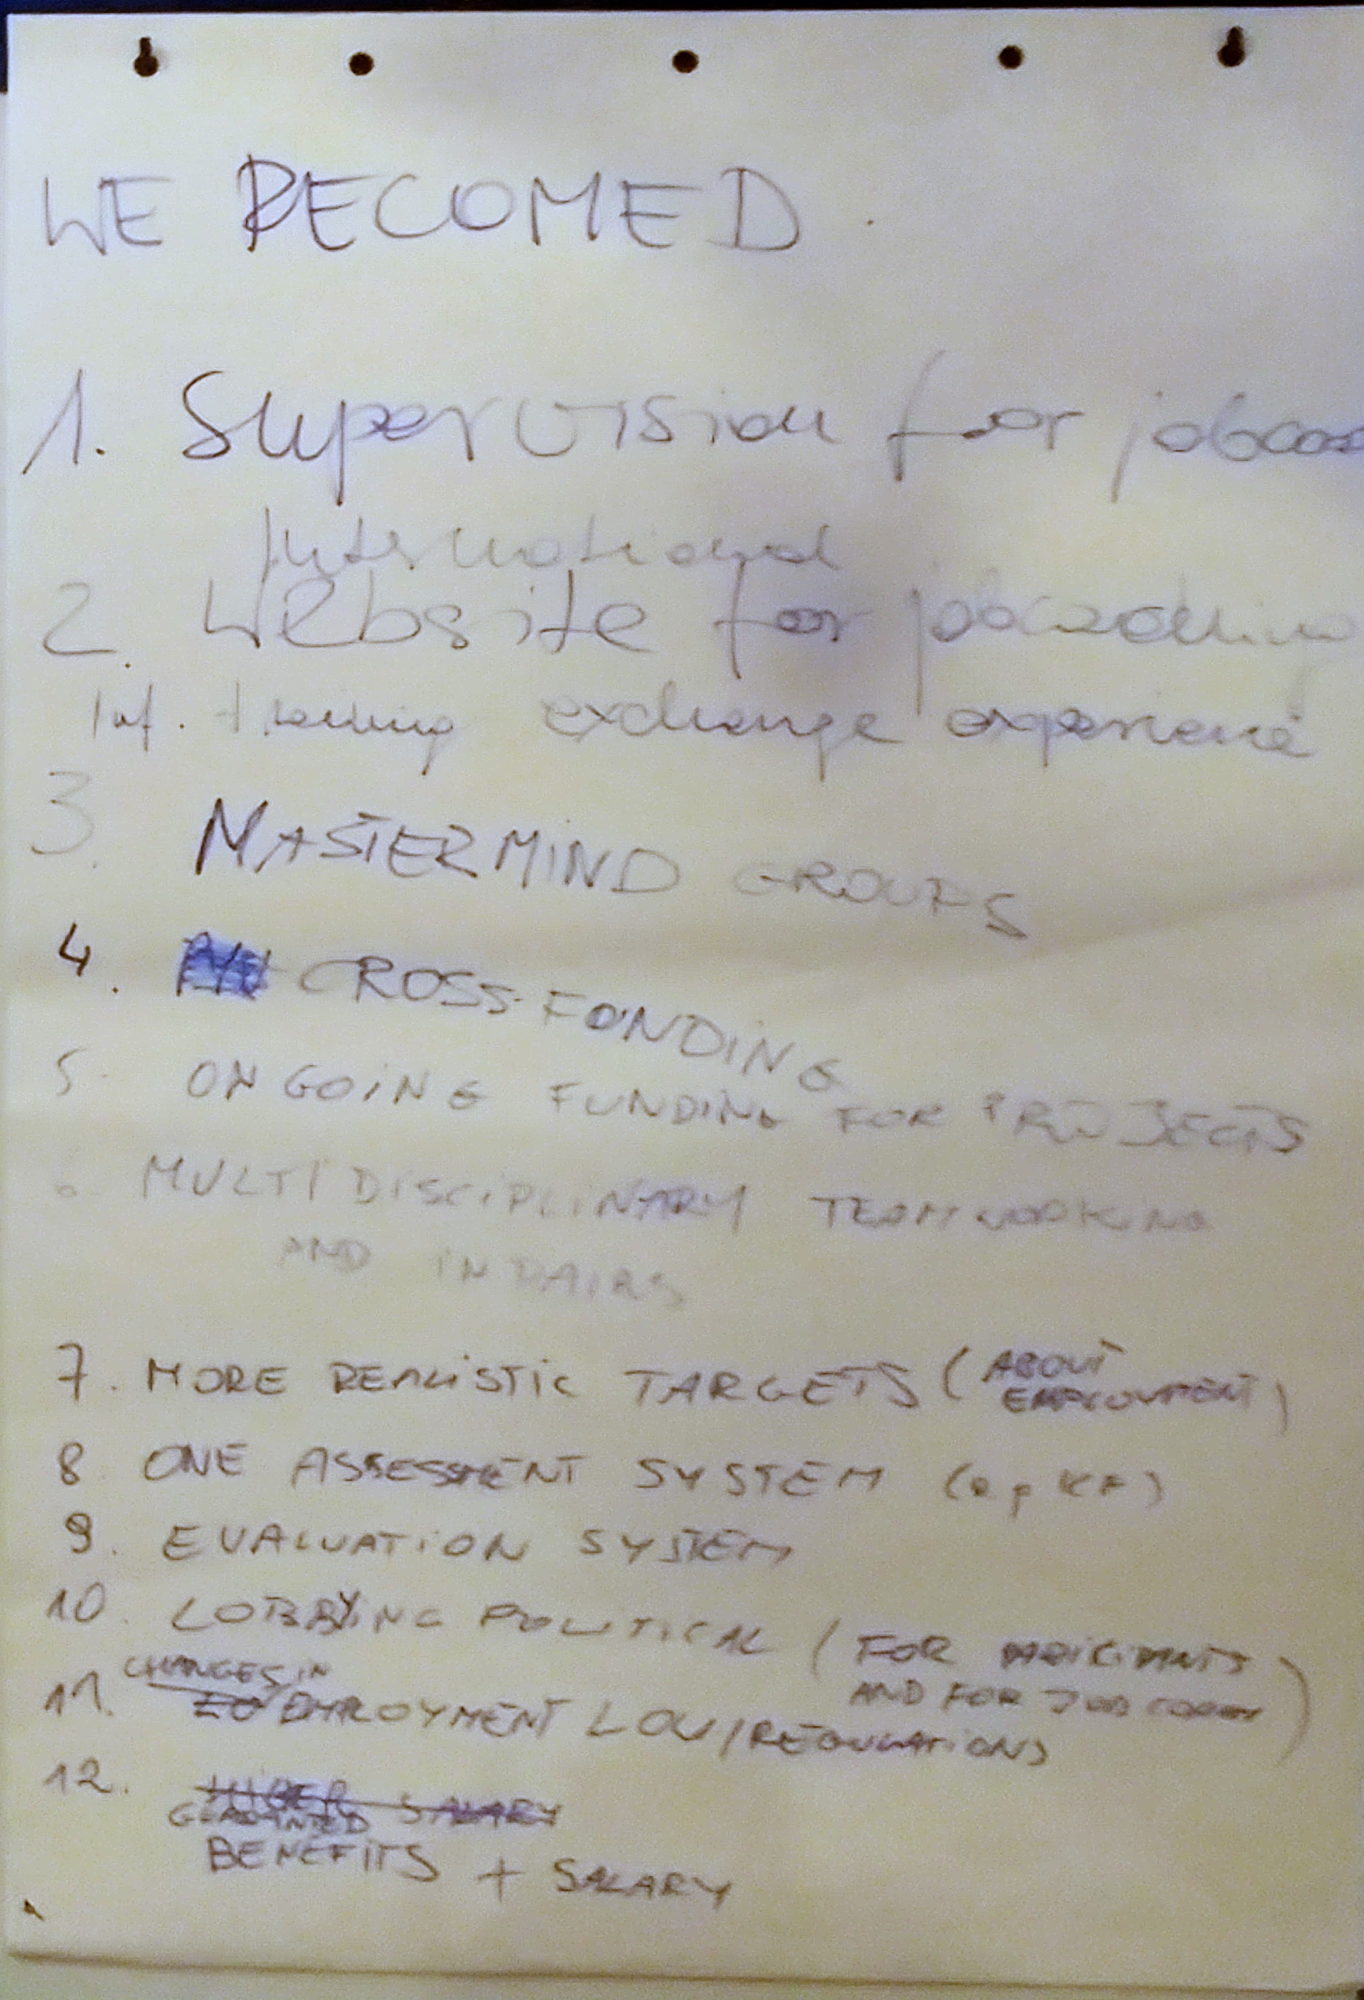 WE RECOMED
1. Supervision for jobcoa
International
2. Website for jobcoaching
Inf. training exchange experience
3. MASTERMIND GROUPS
4. CROSS-FONDING
5. ONGOING FUNDING FOR PROJECTS
6. MULTIDISCIPLINARY TEAMWORKING
AND IN PAIRS
7. MORE REALISTIC TARGETS (ABOUT
EMPLOYMENT)
8. ONE ASSESSMENT SYSTEM (e.g KF)
9. EVALUATION SYSTEM
10. LOBBYING POLITICAL (FOR PARTICIPANTS
AND FOR JOB COACH)
CHANGES IN
11. EMPLOYMENT LOW/REGULATIONS
12. HIGER SALARY
BENEFITS + SALARY